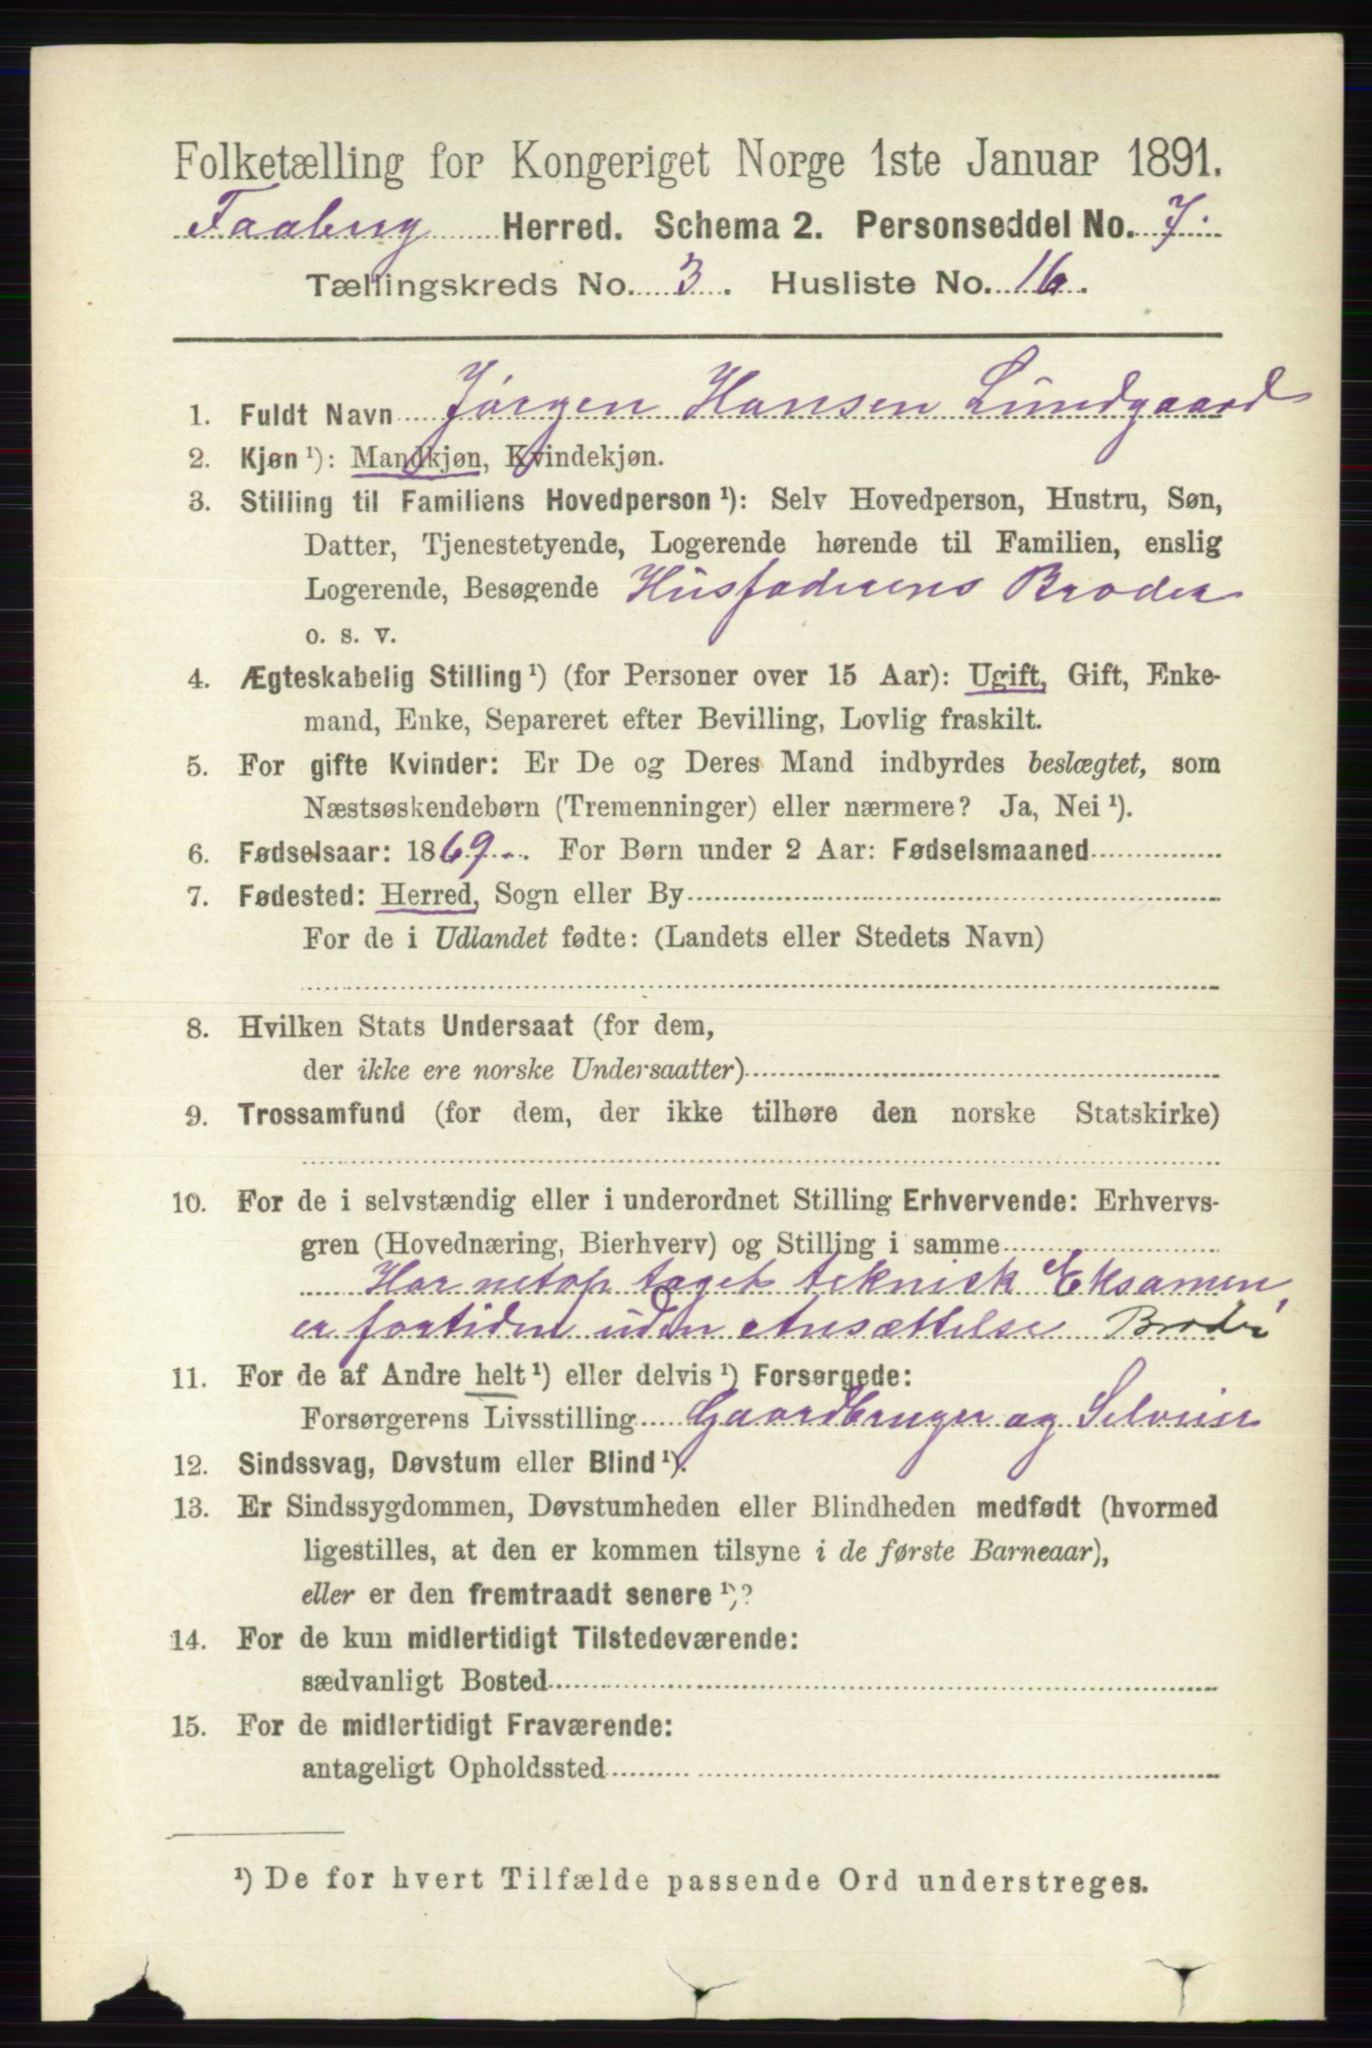 Folketælling for Kongeriget Norge 1ste Januar 1891.
Faaberg Herred. Schema 2. Personseddel No. 7.
Tællingskreds No. 3. Husliste No. 16.
1. Fuldt Navn Jørgen Hansen Lundgaard
2. Kjøn ¹): Mandkjøn, Kvindekjøn.
3. Stilling til Familiens Hovedperson ¹): Selv Hovedperson, Hustru, Søn,
Datter, Tjenestetyende, Logerende hørende til Familien, enslig
Logerende, Besøgende Husfaderens Broder
o. s. v.
4. Ægteskabelig Stilling ¹) (for Personer over 15 Aar): Ugift, Gift, Enke-
mand, Enke, Separeret efter Bevilling, Lovlig fraskilt.
5. For gifte Kvinder: Er De og Deres Mand indbyrdes beslægtet, som
Næstsøskendebørn (Tremenninger) eller nærmere? Ja, Nei ¹).
6. Fødselsaar: 1869. For Børn under 2 Aar: Fødselsmaaned
7. Fødested: Herred, Sogn eller By
For de i Udlandet fødte: (Landets eller Stedets Navn)
8. Hvilken Stats Undersaat (for dem,
der ikke ere norske Undersaatter)
9. Trossamfund (for dem, der ikke tilhøre den norske Statskirke)
10. For de i selvstændig eller i underordnet Stilling Erhvervende: Erhvervs-
gren (Hovednæring, Bierhverv) og Stilling i samme
Har netop taget teknisk Eksamen,
er fortiden uden Ansættelse Broder
11. For de af Andre helt ¹) eller delvis ¹) Forsørgede:
Forsørgerens Livsstilling Gaardbruger og Selveier
12. Sindssvag, Døvstum eller Blind ¹).
13. Er Sindssygdommen, Døvstumheden eller Blindheden medfødt (hvormed
ligestilles, at den er kommen tilsyne i de første Barneaar),
eller er den fremtraadt senere ¹)?
14. For de kun midlertidigt Tilstedeværende:
sædvanligt Bosted
15. For de midlertidigt Fraværende:
antageligt Opholdssted
¹) De for hvert Tilfælde passende Ord understreges.